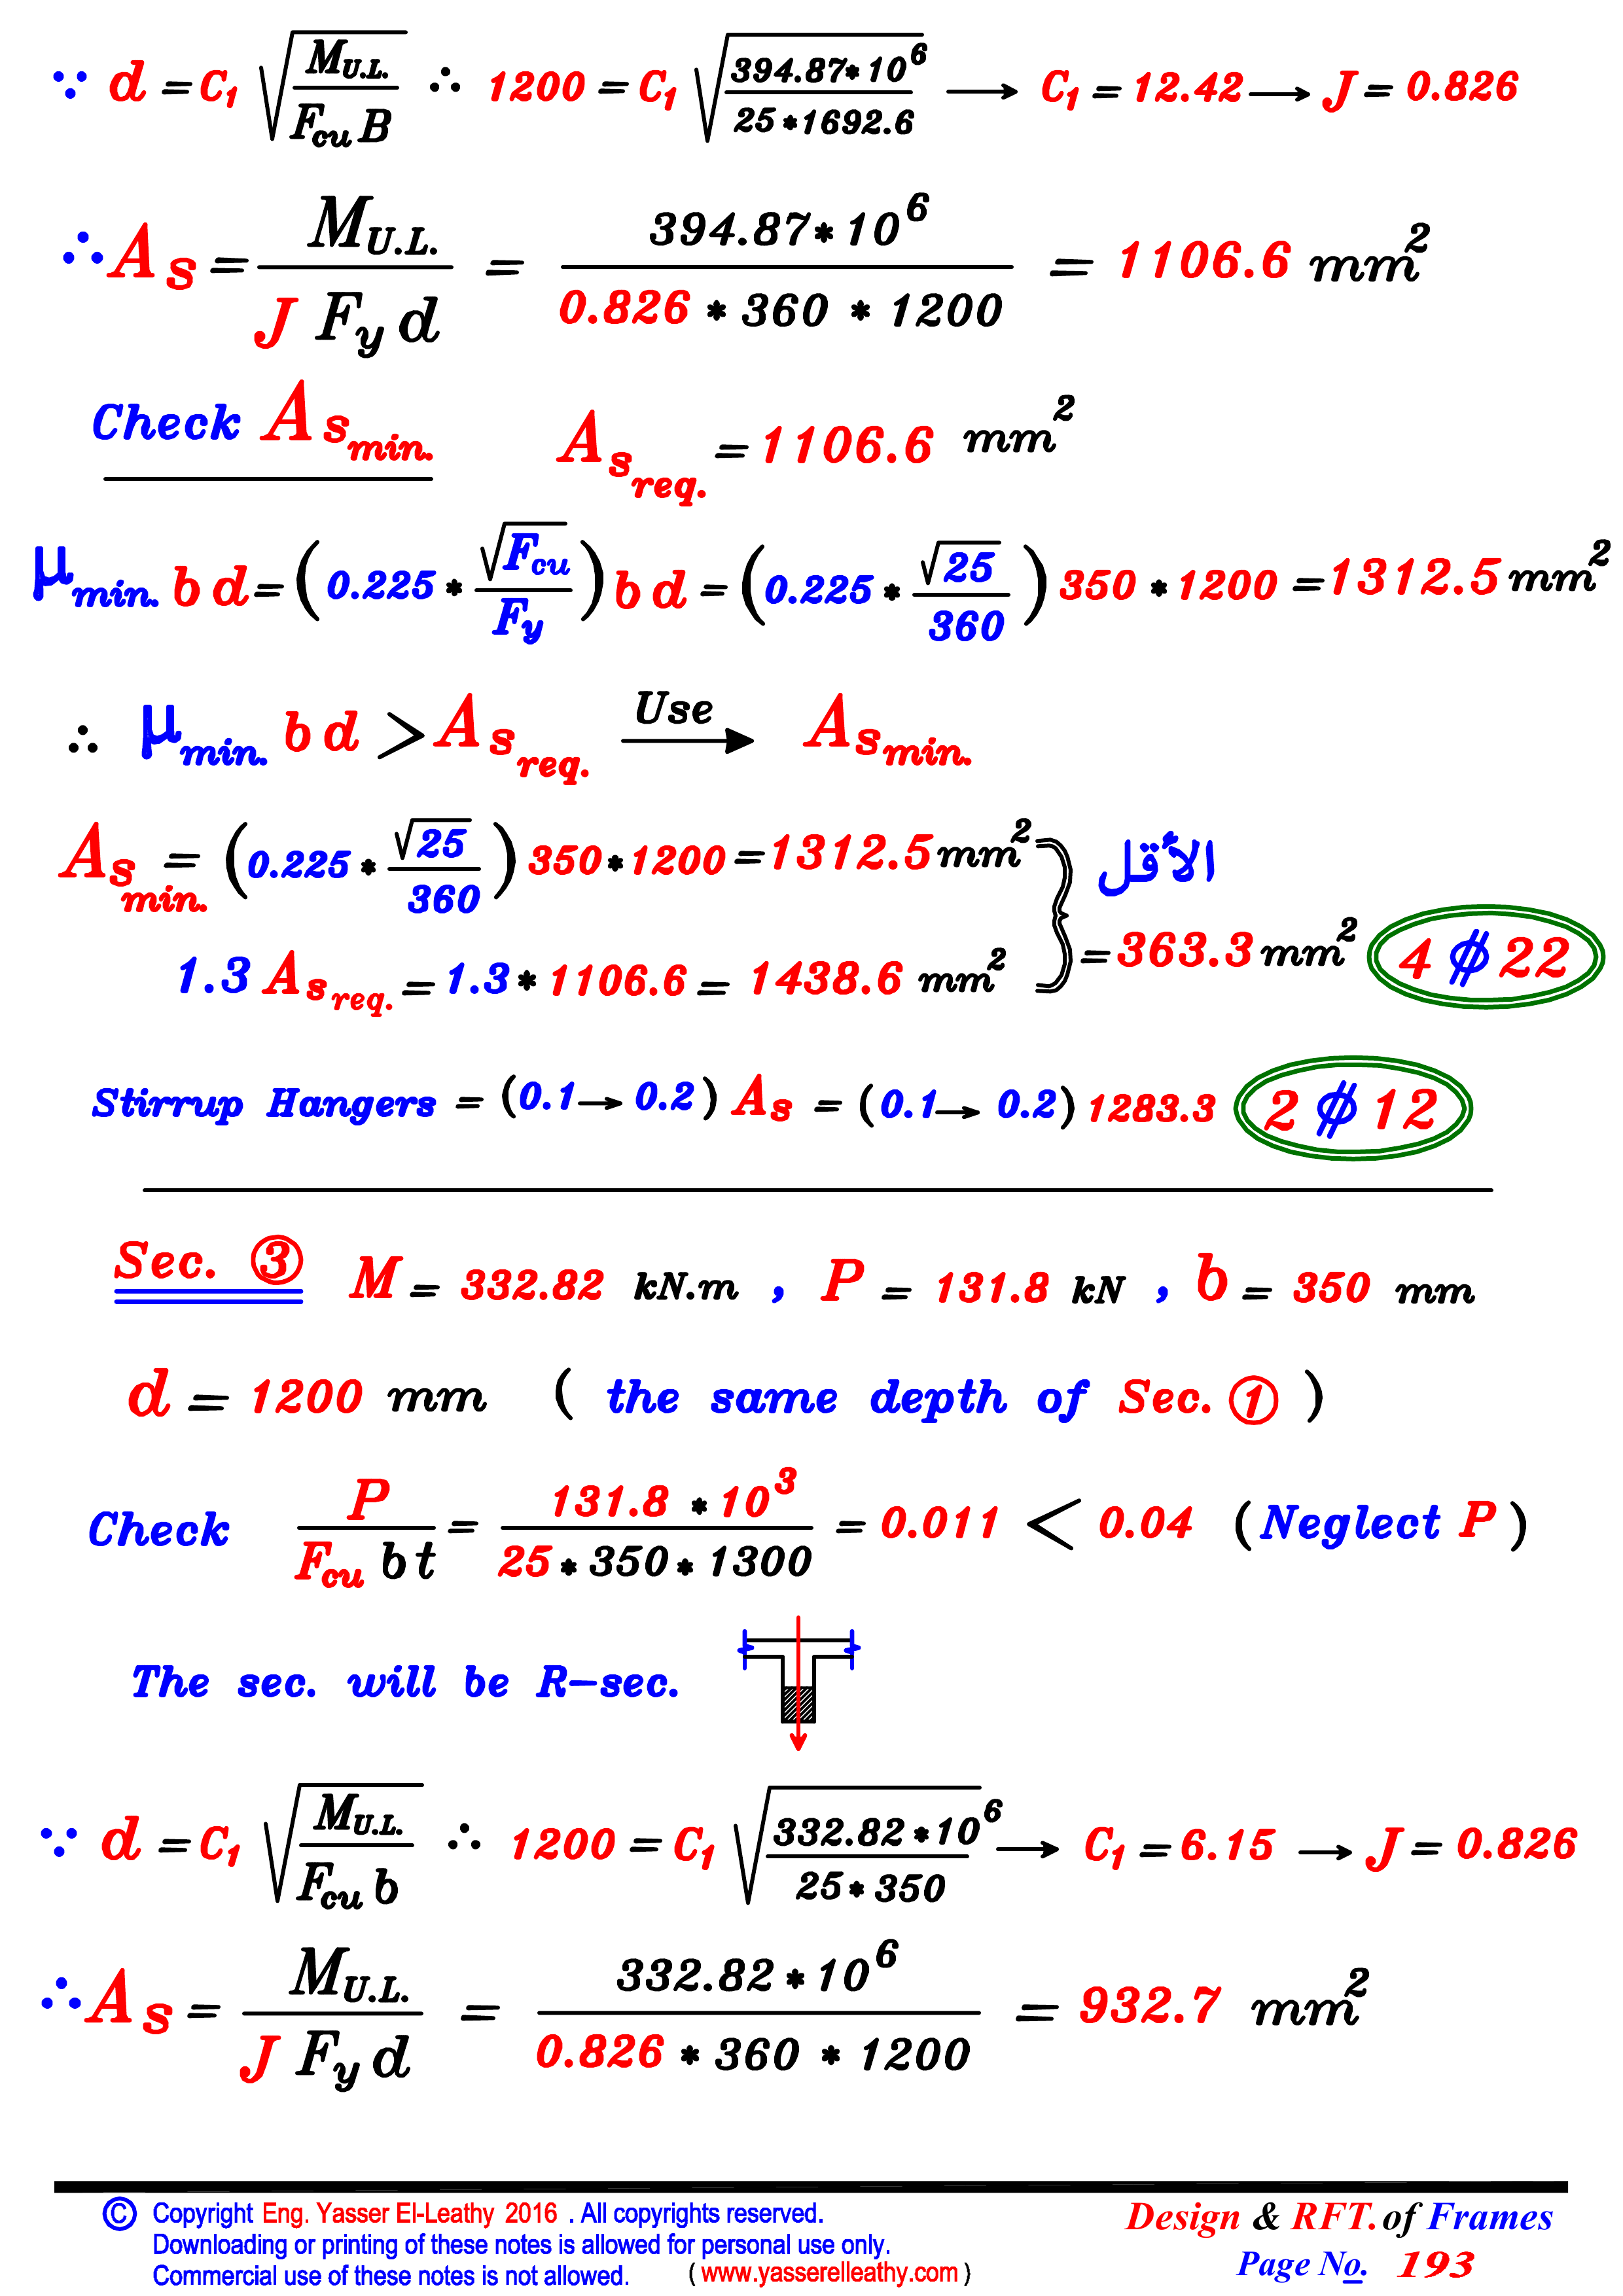 ∵ d = C1 √(M U.L. / Fcu B) ∴ 1200 = C1 √(394.87*10^6 / 25*1692.6) → C1 = 12.42 → J = 0.826
∴ As = M U.L. / J Fy d = 394.87*10^6 / 0.826 * 360 * 1200 = 1106.6 mm²
Check As min. As req. = 1106.6 mm²
μ min. b d = (0.225 * √Fcu / Fy) b d = (0.225 * √25 / 360) 350 * 1200 = 1312.5 mm²
∴ μ min. b d > As req. Use → As min.
As min. = (0.225 * √25 / 360) 350*1200 = 1312.5 mm² } الأقل
1.3 As req. = 1.3 * 1106.6 = 1438.6 mm² } = 363.3 mm² 4 ⌀ 22
Stirrup Hangers = (0.1 → 0.2) As = (0.1 → 0.2) 1283.3 2 ⌀ 12
Sec. ③ M = 332.82 kN.m , P = 131.8 kN , b = 350 mm
d = 1200 mm ( the same depth of Sec. ① )
Check P / Fcu b t = 131.8 * 10^3 / 25 * 350 * 1300 = 0.011 < 0.04 (Neglect P)
The sec. will be R-sec.
∵ d = C1 √(M U.L. / Fcu b) ∴ 1200 = C1 √(332.82*10^6 / 25*350) → C1 = 6.15 → J = 0.826
∴ As = M U.L. / J Fy d = 332.82 * 10^6 / 0.826 * 360 * 1200 = 932.7 mm²
© Copyright Eng. Yasser El-Leathy 2016 . All copyrights reserved.
Downloading or printing of these notes is allowed for personal use only.
Commercial use of these notes is not allowed. ( www.yasserelleathy.com )
Design & RFT. of Frames
Page No. 193